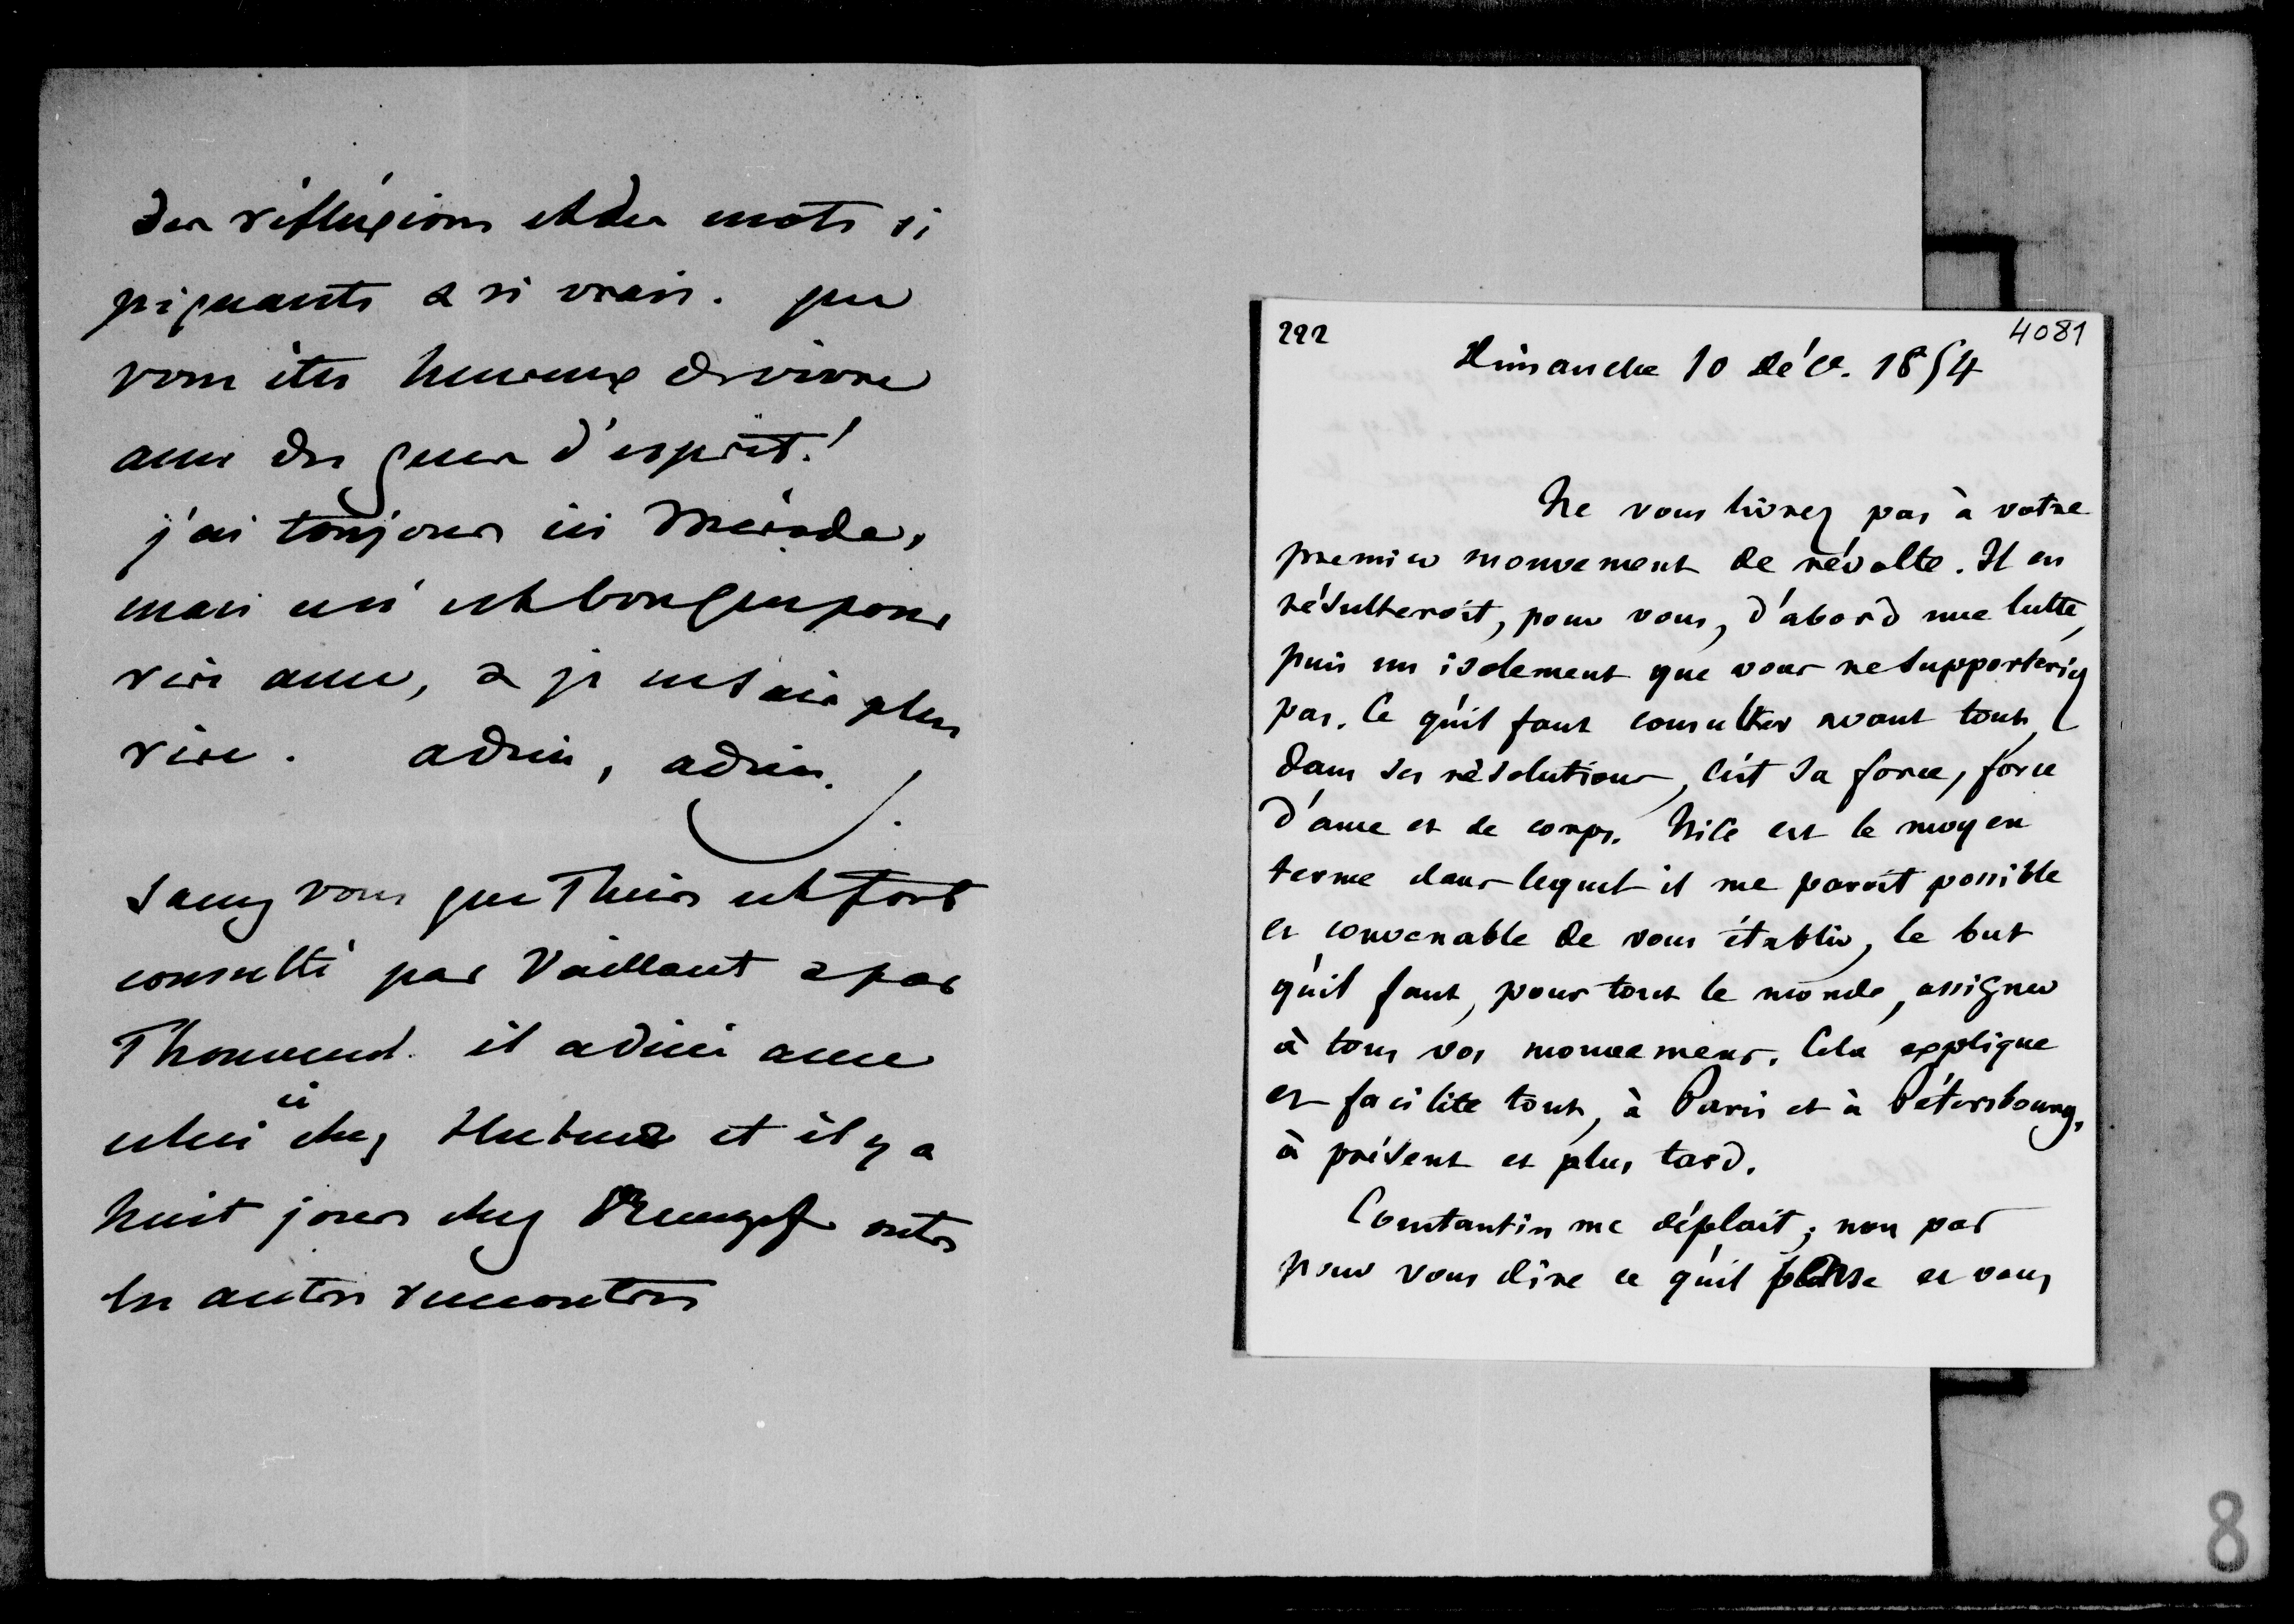 des réflexions et des mots si
piquants & si vrais. que
vous êtes heureux de vivre
avec des gens d'esprit!
j'ai toujours ici Meïnde,
mais ceci est bon que pour
rire avec, & je ne sais plus
rire. adieu, adieu.
Savez vous que Thiers est fort
consulté par Vaillant & par
Thouvenel. il a diné avec
celui ci chez Hubner et il y a
huit jours chez Rumpf outre
les autres rencontres
222
4081
Dimanche 10 Déce. 1854
Ne vous livrez pas à votre
premier mouvement de révolte. Il en
résulteroit, pour vous, d'abord une lutte,
puis un isolement que vous ne supporteriez
pas. Ce qu'il faut consulter avant tout,
dans ses résolutions, c'est sa force, force
d'ame et de corps. Nice est le moyen
terme dans lequel il me paroit possible
et convenable de vous établir, le but
qu'il faut, pour tout le monde, assigner
à tous vos mouvemens. Cela explique
et facilite tout, à Paris et à Pétersbourg,
à présent et plus tard.
Constantin me déplait; non pas
pour vous dire ce qu'il pense et vous
8